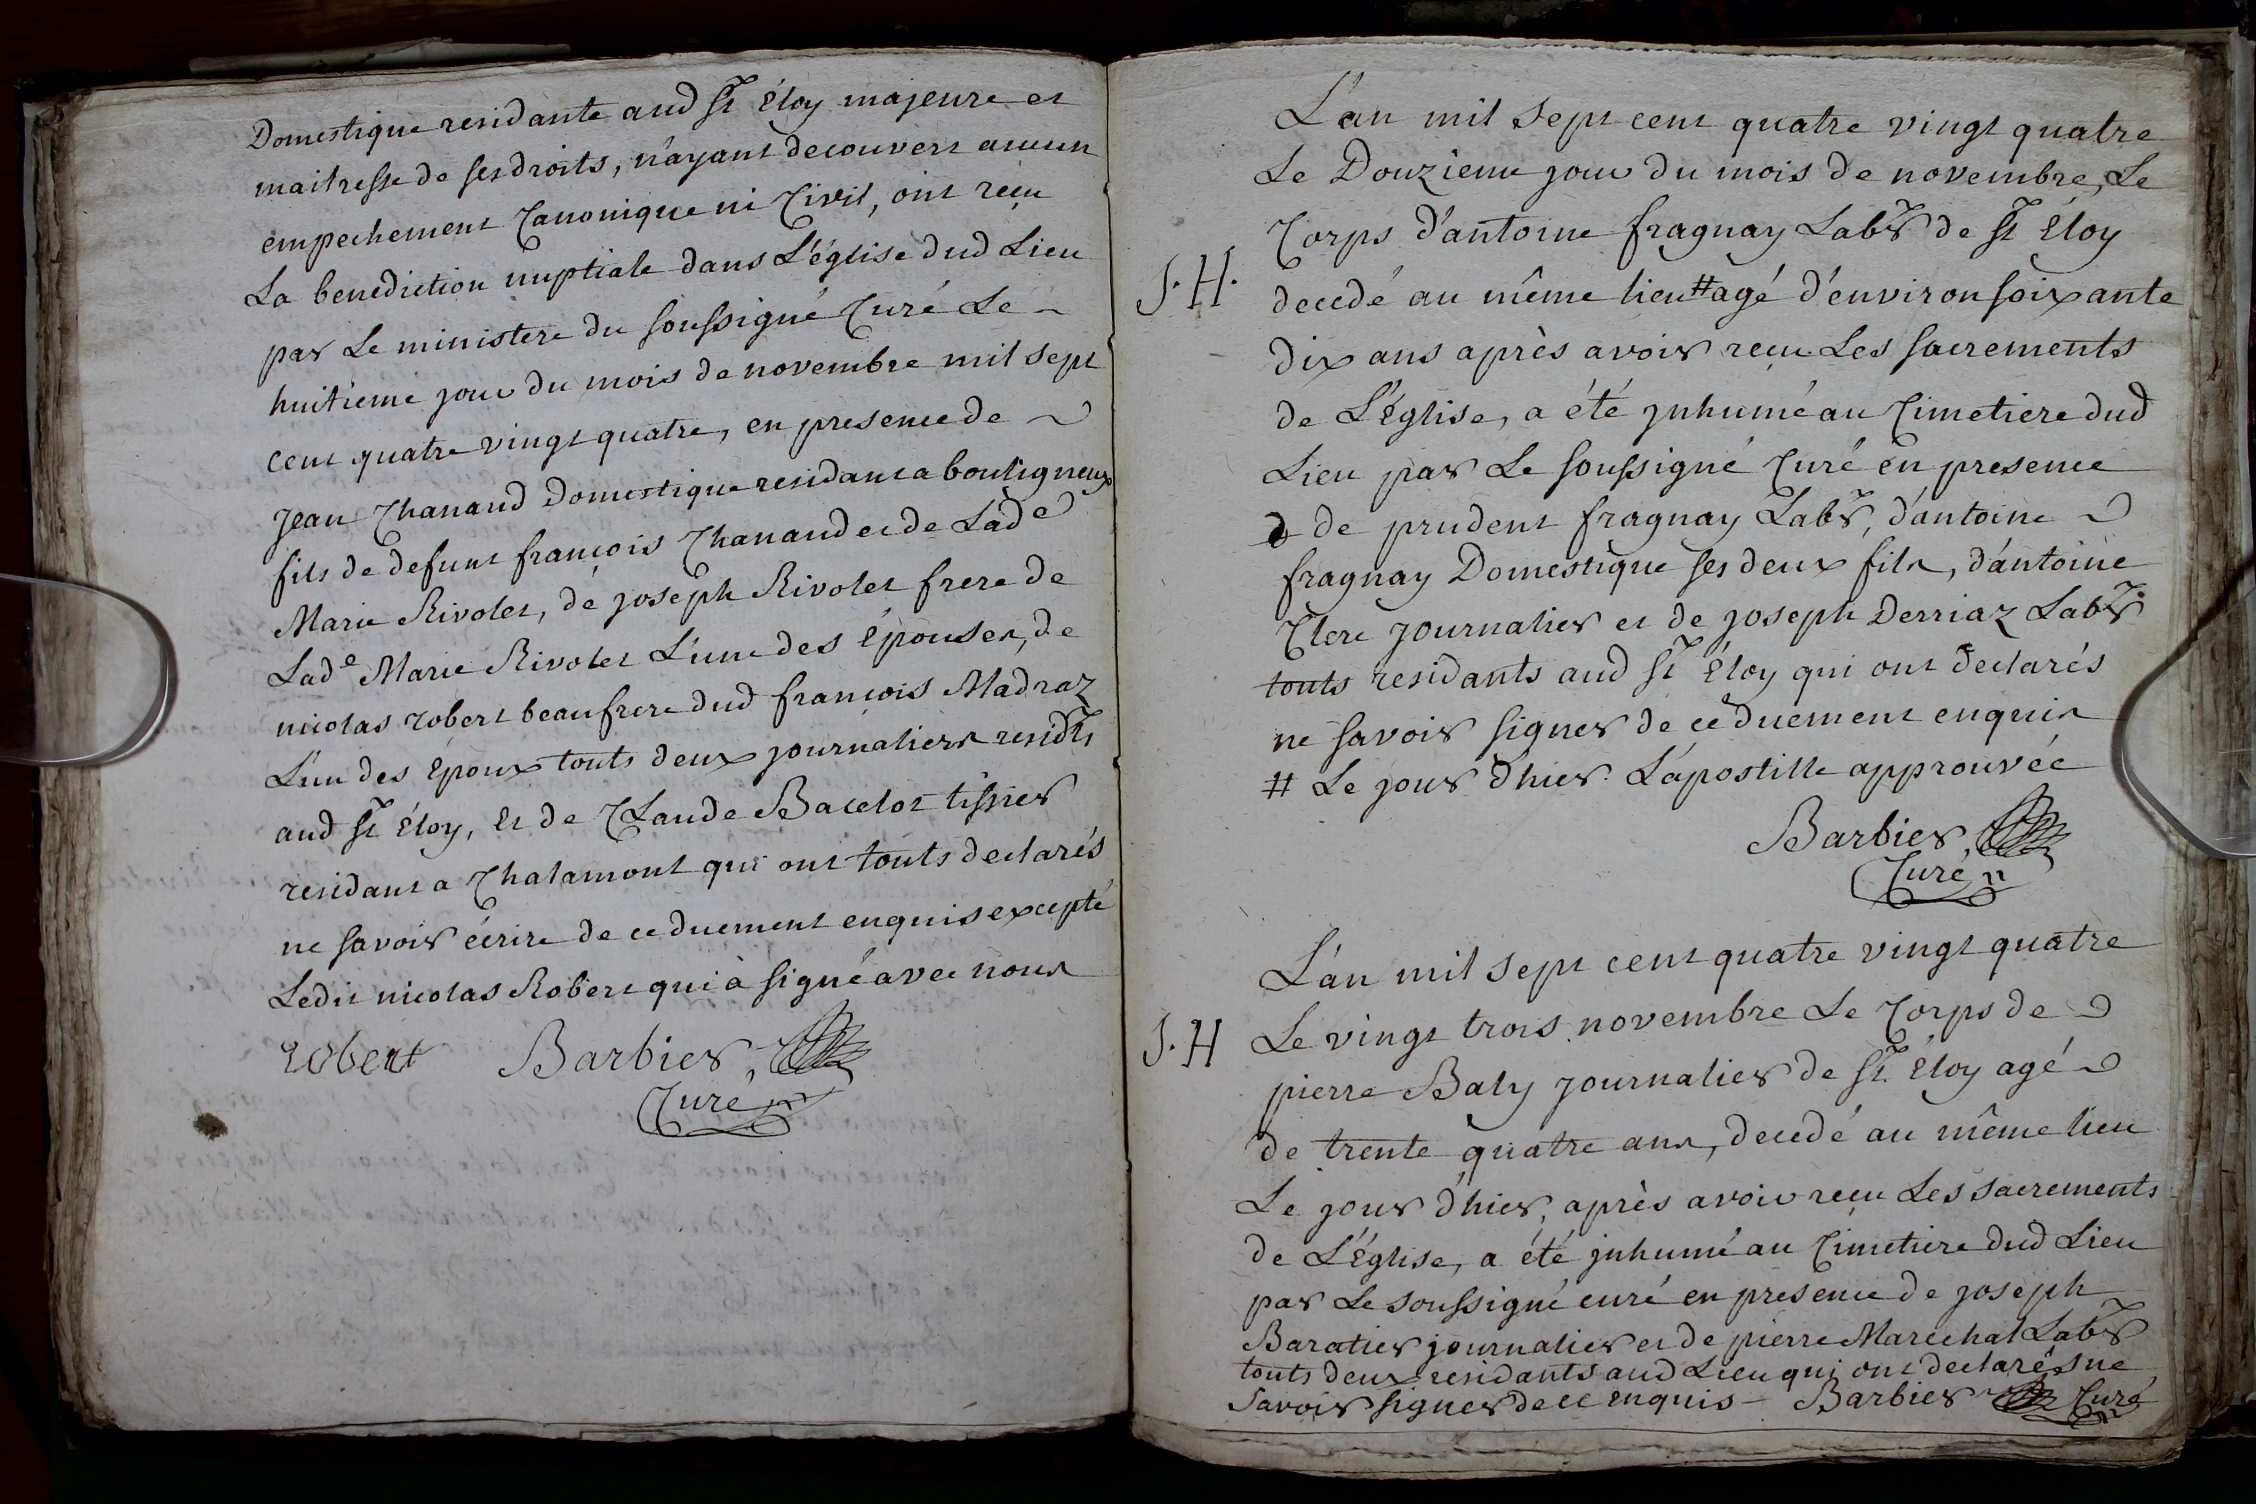 Domestique residante aud St Éloy majeure et
maitresse de ses droits, n'ayant decouvert aucun
empechement Canonique ni Civil, ont reçu
La benediction nuptiale dans L'église dud Lieu
par Le ministere du soussigné Curé Le
huitieme jour du mois de novembre mil sept
cent quatre vingt quatre, en presence de
Jean Chanaud Domestique residant a bouligneux
fils de defunt françois Chanaud et de Lade
Marie Rivolet, de joseph Rivolet frere de
Lade Marie Rivolet L'une des Épouses, de
nicolas robert beaufrere dud françois Madraz
L'un des Époux touts deux journaliers residts
aud St Éloy, Et de Claude Bacelot tissier
residant a Chalamont qui ont touts declarés
ne savoir écrire de ce duement enquis excepté
Ledit nicolas Robert qui à signé avec nous
robert Barbier
Curé
L'an mil sept cent quatre vingt quatre
Le Douzieme jour du mois de novembre, Le
Corps d'antoine fragnay Labr de St Éloy
S.H. decedé au même lieu # agé d'environ soixante
dix ans après avoir reçu Les sacrements
de L'Église, a été jnhumé au Cimetiere dud
Lieu par Le soussigné Curé en presence
de prudent fragnay Labr, d'antoine
fragnay Domestique ses deux fils, d'antoine
Clerc journalier et de joseph Derriaz Labr
touts residants aud St Éloy qui ont declarés
ne savoir signer de ce duement enquis
# Le jour d'hier. L'apostille approuvée
Barbier
Curé
L'an mil sept cent quatre vingt quatre
S.H Le vingt trois novembre Le Corps de
pierre Baly journalier de St Éloy agé
de trente quatre ans, decedé au même lieu
Le jour d'hier, après avoir reçu Les sacrements
de L'Église, a été jnhumé au Cimetiere dud Lieu
par Le soussigné curé en presence de joseph
Baratier journalier et de pierre Marechal Labr
touts deux residants aud Lieu qui ont declarés ne
savoir signer de ce enquis - Barbier Curé